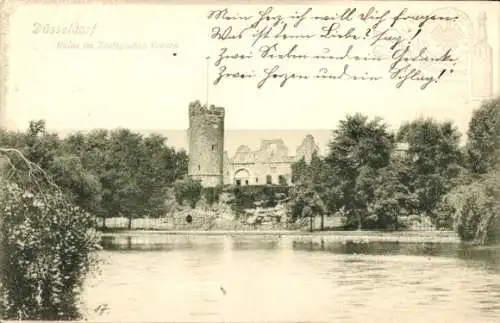 Düsseldorf
Ruine im Zoologischen Garten
Mein Herz ich will dich fragen,
Was ist denn Liebe? Sag'!
Zwei Seelen und ein Gedanke,
Zwei Herzen und ein Schlag!